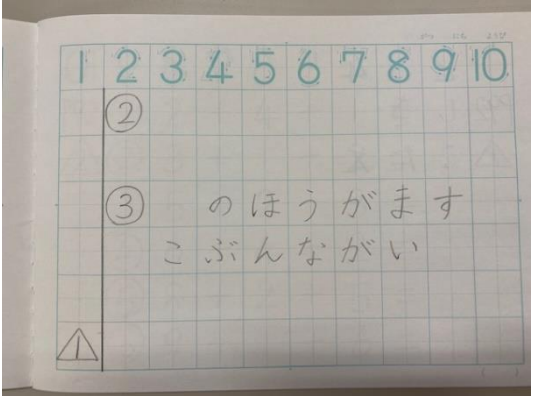 1 2 3 4 5 6 7 8 9 10
②
③ のほうがます
こぶんながい
1